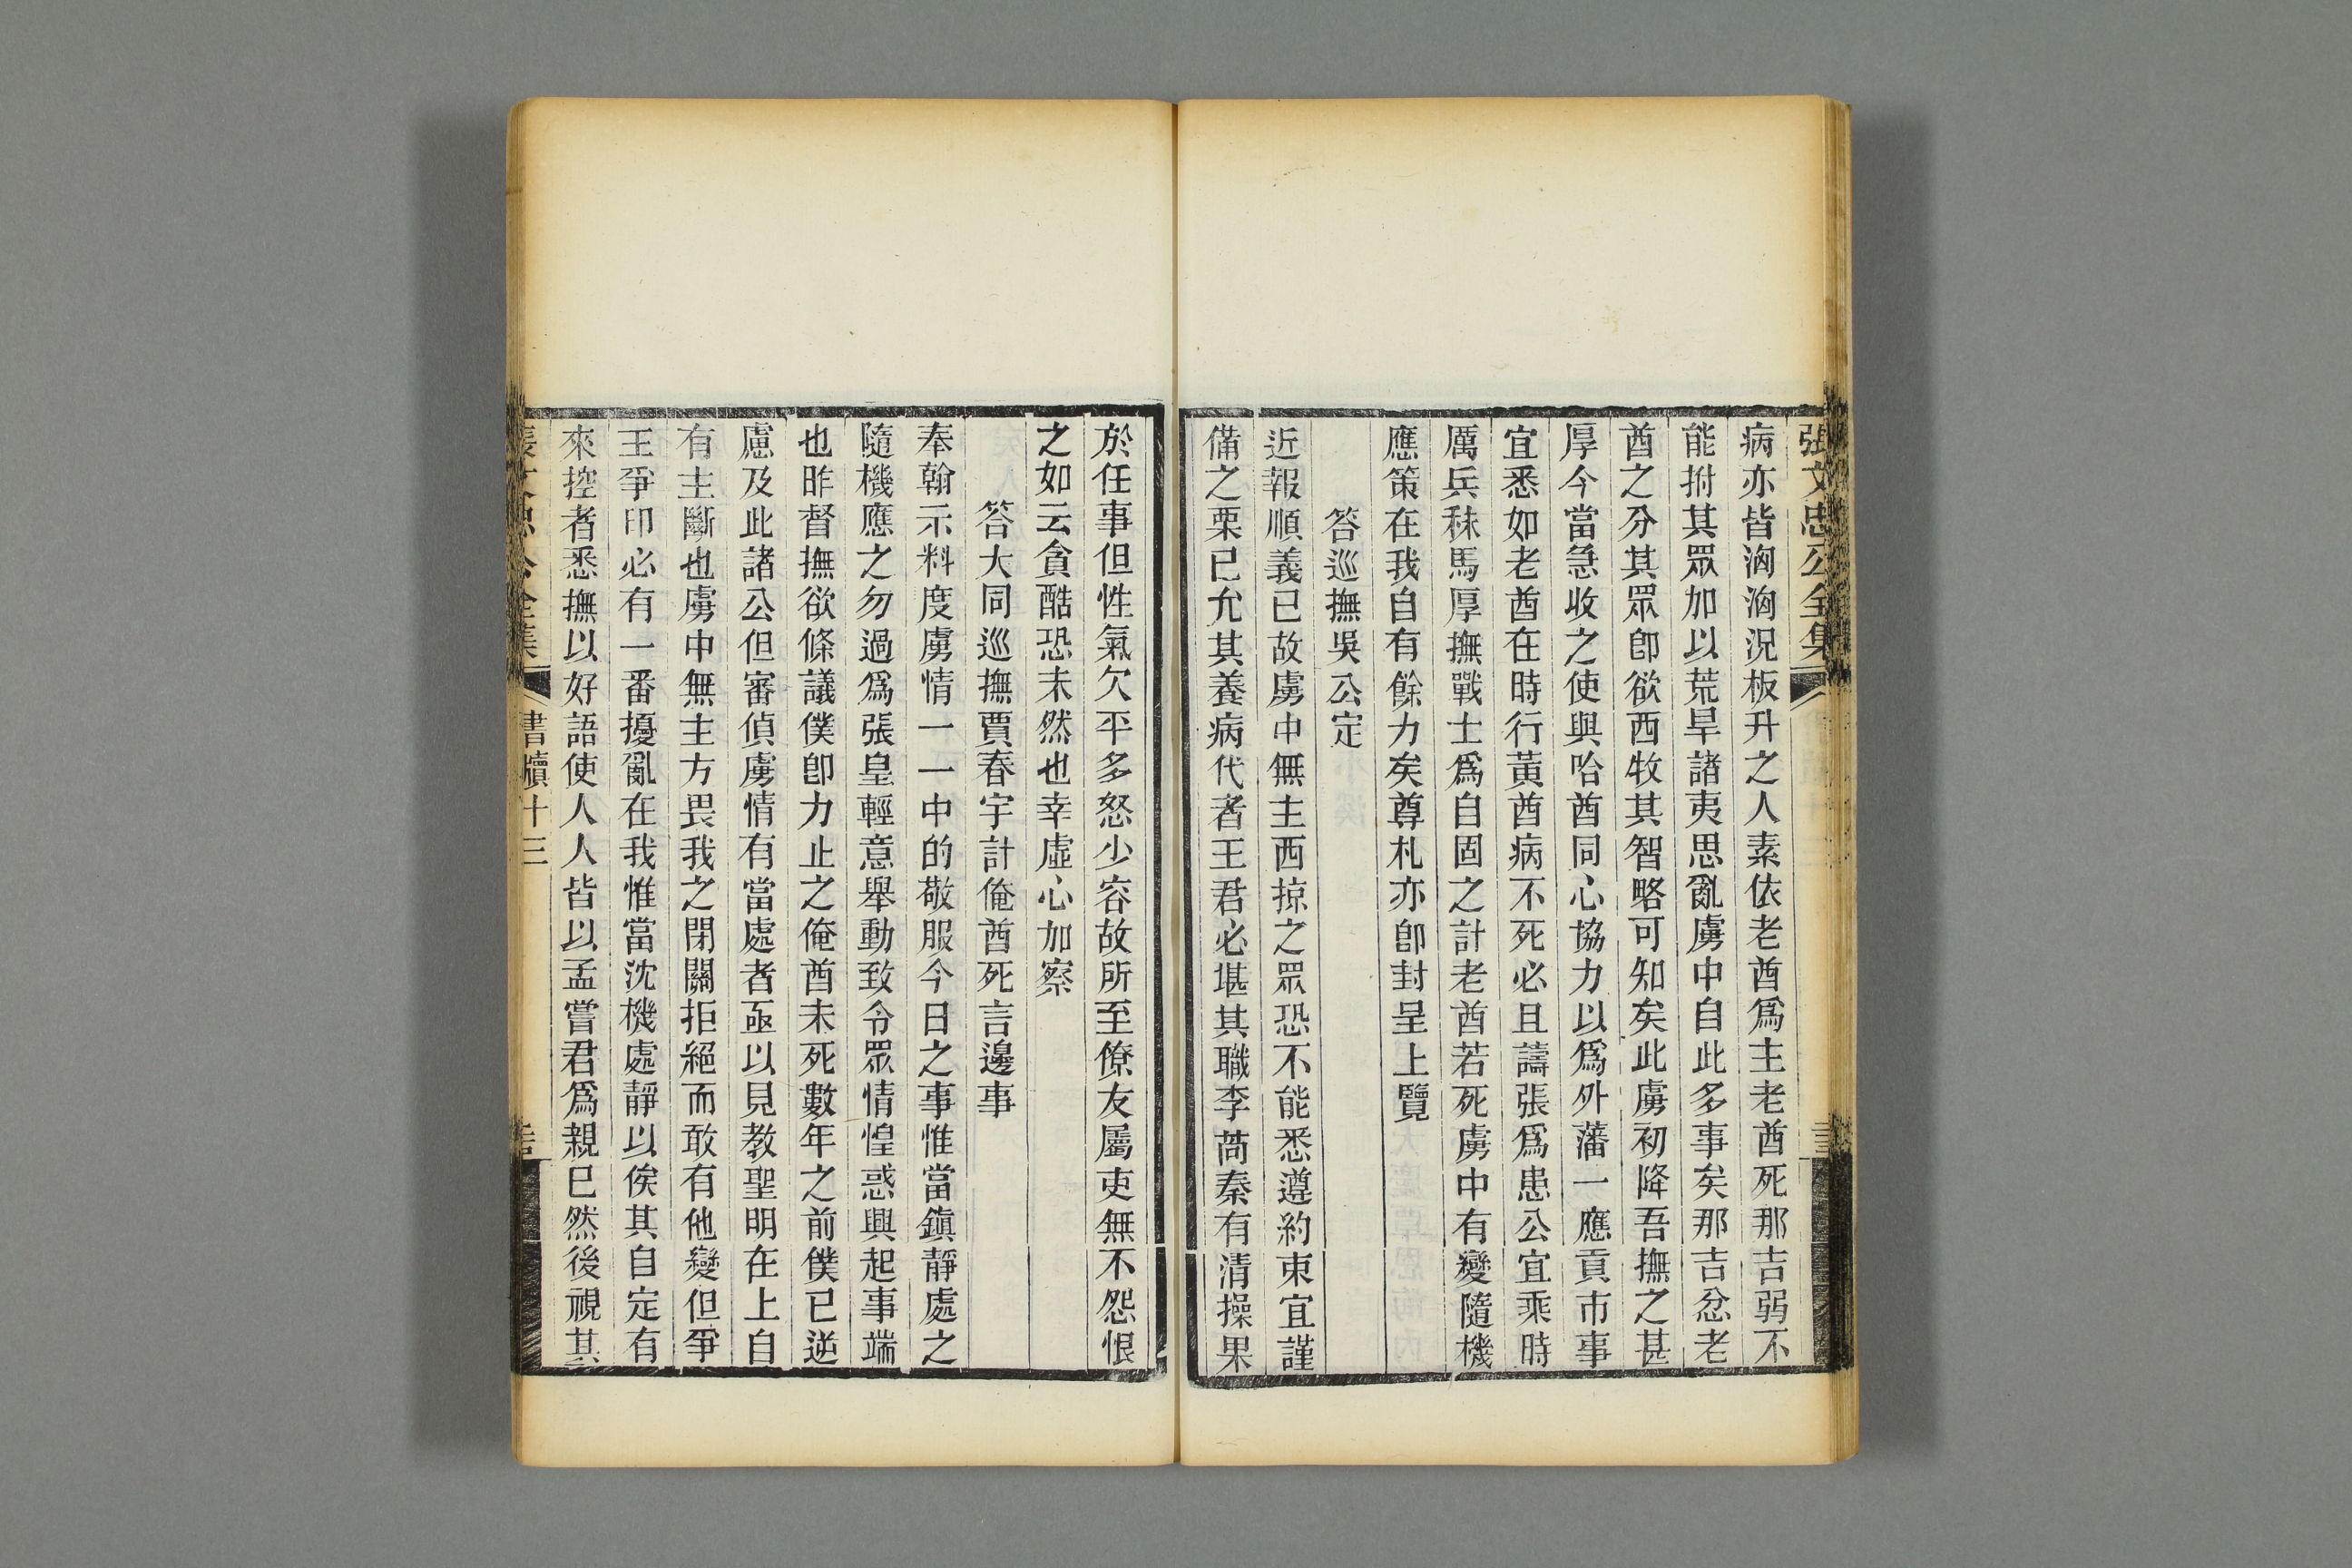 張文忠公全集
病亦皆洶洶況板升之人素依老酋爲主老酋死那吉弱不
能拊其眾加以荒旱諸夷思亂虜中自此多事矣那吉忿老
酋之分其眾卽欲西牧其智略可知矣此虜初降吾撫之甚
厚今當急收之使與哈酋同心協力以爲外藩一應貢市事
宜悉如老酋在時行黃酋病不死必且譸張爲患公宜乘時
厲兵秣馬厚撫戰士爲自固之計老酋若死虜中有變隨機
應策在我自有餘力矣尊札亦卽封呈上覽
答巡撫吳公定
近報順義已故虜中無主西掠之眾恐不能悉遵約束宜謹
備之栗已允其養病代者王君必堪其職李茼秦有清操果
於任事但性氣欠平多怒少容故所至僚友屬吏無不怨恨
之如云貪酷恐未然也幸虛心加察
答大同巡撫賈春宇計俺酋死言邊事
奉翰示料度虜情一一中的敬服今日之事惟當鎭靜處之
隨機應之勿過爲張皇輕意舉動致令眾情惶惑興起事端
也昨督撫欲條議僕卽力止之俺酋未死數年之前僕已逆
慮及此諸公但審偵虜情有當處者亟以見教聖明在上自
有主斷也虜中無主方畏我之閉關拒絕而敢有他變但爭
王爭印必有一番擾亂在我惟當沈機處靜以俟其自定有
來控者悉撫以好語使人人皆以孟嘗君爲親已然後視其
張文忠公全集
書牘十三